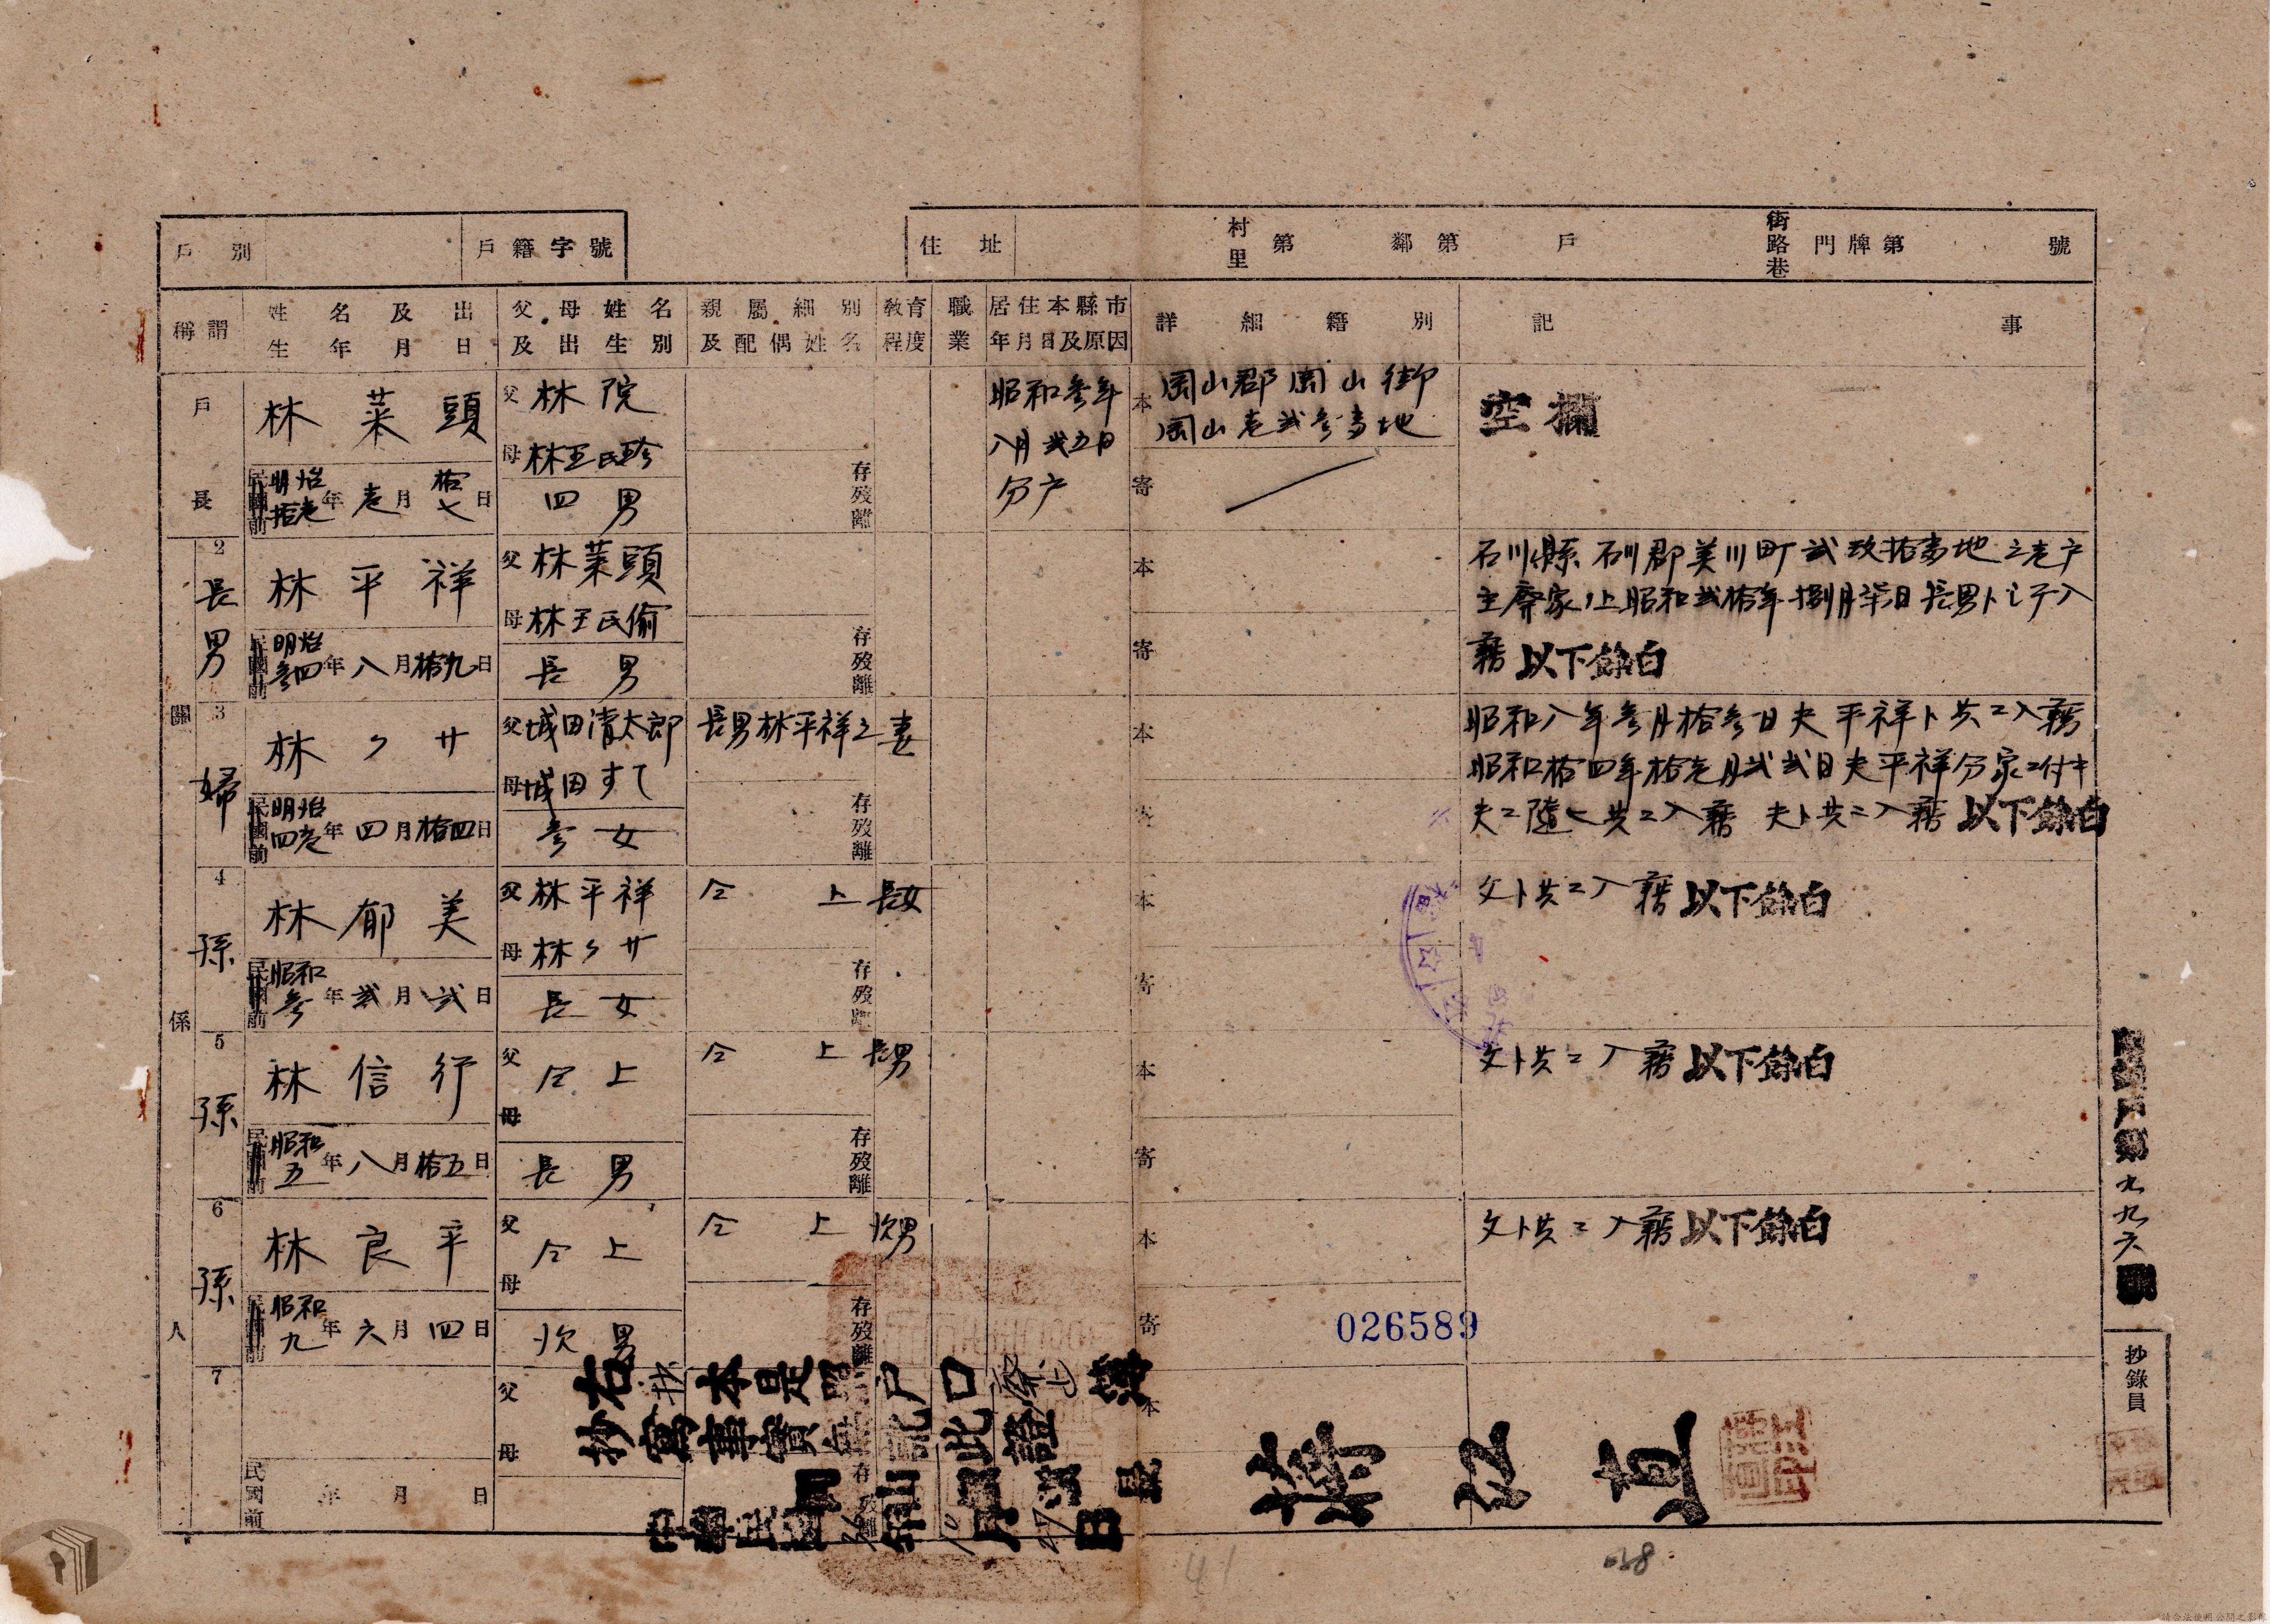 戶別 戶籍字號 住址 村里 第 鄰第 戶 街路巷 門牌第 號
稱謂 姓名及出生年月日 父母姓名及出生別 親屬細別及配偶姓名 教育程度 職業 居住本縣市年月日及原因 詳細籍別 記事
戶長
林菜頭
明治拾壱年壱月拾七日
父 林院
母 林王氏珍
四男
存歿離
昭和参年
八月弍五日
分户
本 岡山郡岡山街
岡山壱弍参番地
寄
空欄
關係人
2
長男
林平祥
明治参四年八月拾九日
父 林菜頭
母 林王氏偷
長男
存歿離
本
寄
石川縣石川郡美川町弍玖拾番地之壱户
主廃家ノ上昭和弍拾年捌月柒日長男トシテ入
籍 以下餘白
3
婦
林クサ
明治四壱年四月拾四日
父 城田清太郎
母 城田すて
参女
長男林平祥之妻
存歿離
本
寄
昭和八年参月拾参日夫平祥ト共ニ入籍
昭和拾四年拾壱月弍弍日夫平祥分家ニ付キ
夫ニ隨ヒ共ニ入籍 夫ト共ニ入籍 以下餘白
4
孫
林郁美
昭和参年弍月弍日
父 林平祥
母 林クサ
長女
仝上長女
存歿離
本
寄
父ト共ニ入籍 以下餘白
5
孫
林信行
昭和五年八月拾五日
父母 仝上
長男
仝上長男
存歿離
本
寄
父ト共ニ入籍 以下餘白
6
孫
林良平
昭和九年六月四日
父母 仝上
次男
仝上次男
存歿離
本
寄
父ト共ニ入籍 以下餘白
026589
7
父
母
民國前 年 月 日
右抄本是照戶口簿
抄寫事實無訛此證
中華民國 年 月 日
第九九六號
抄錄員
41